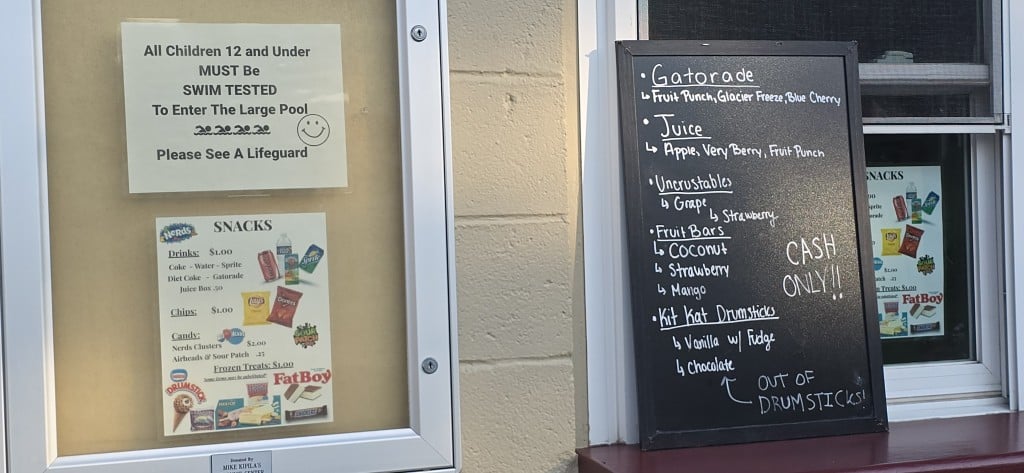 All Children 12 and Under
MUST Be
SWIM TESTED
To Enter The Large Pool
Please See A Lifeguard
Nerds
SNACKS
Drinks: $1.00
Coke - Water - Sprite
Diet Coke - Gatorade
Juice Box .50
Sprite
Lay's
Doritos
Chips: $1.00
Candy:
Nerds Clusters $2.00
Airheads & Sour Patch .25
Frozen Treats: $1.00
Some items may be substituted
DRUMSTICK
FatBoy
Donated By
MIKE KIPILA
• Gatorade
↳ Fruit Punch, Glacier Freeze, Blue Cherry
• Juice
↳ Apple, Very Berry, Fruit Punch
• Uncrustables
↳ Grape
↳ Strawberry
• Fruit Bars
↳ Coconut
↳ Strawberry
↳ Mango
• Kit Kat Drumsticks
↳ Vanilla w/ Fudge
↳ Chocolate
CASH
ONLY!!
OUT OF
DRUMSTICKS!
SNACKS
$1.00
Sprite
$1.00
$2.00
.25
Treats: $1.00
FatBoy